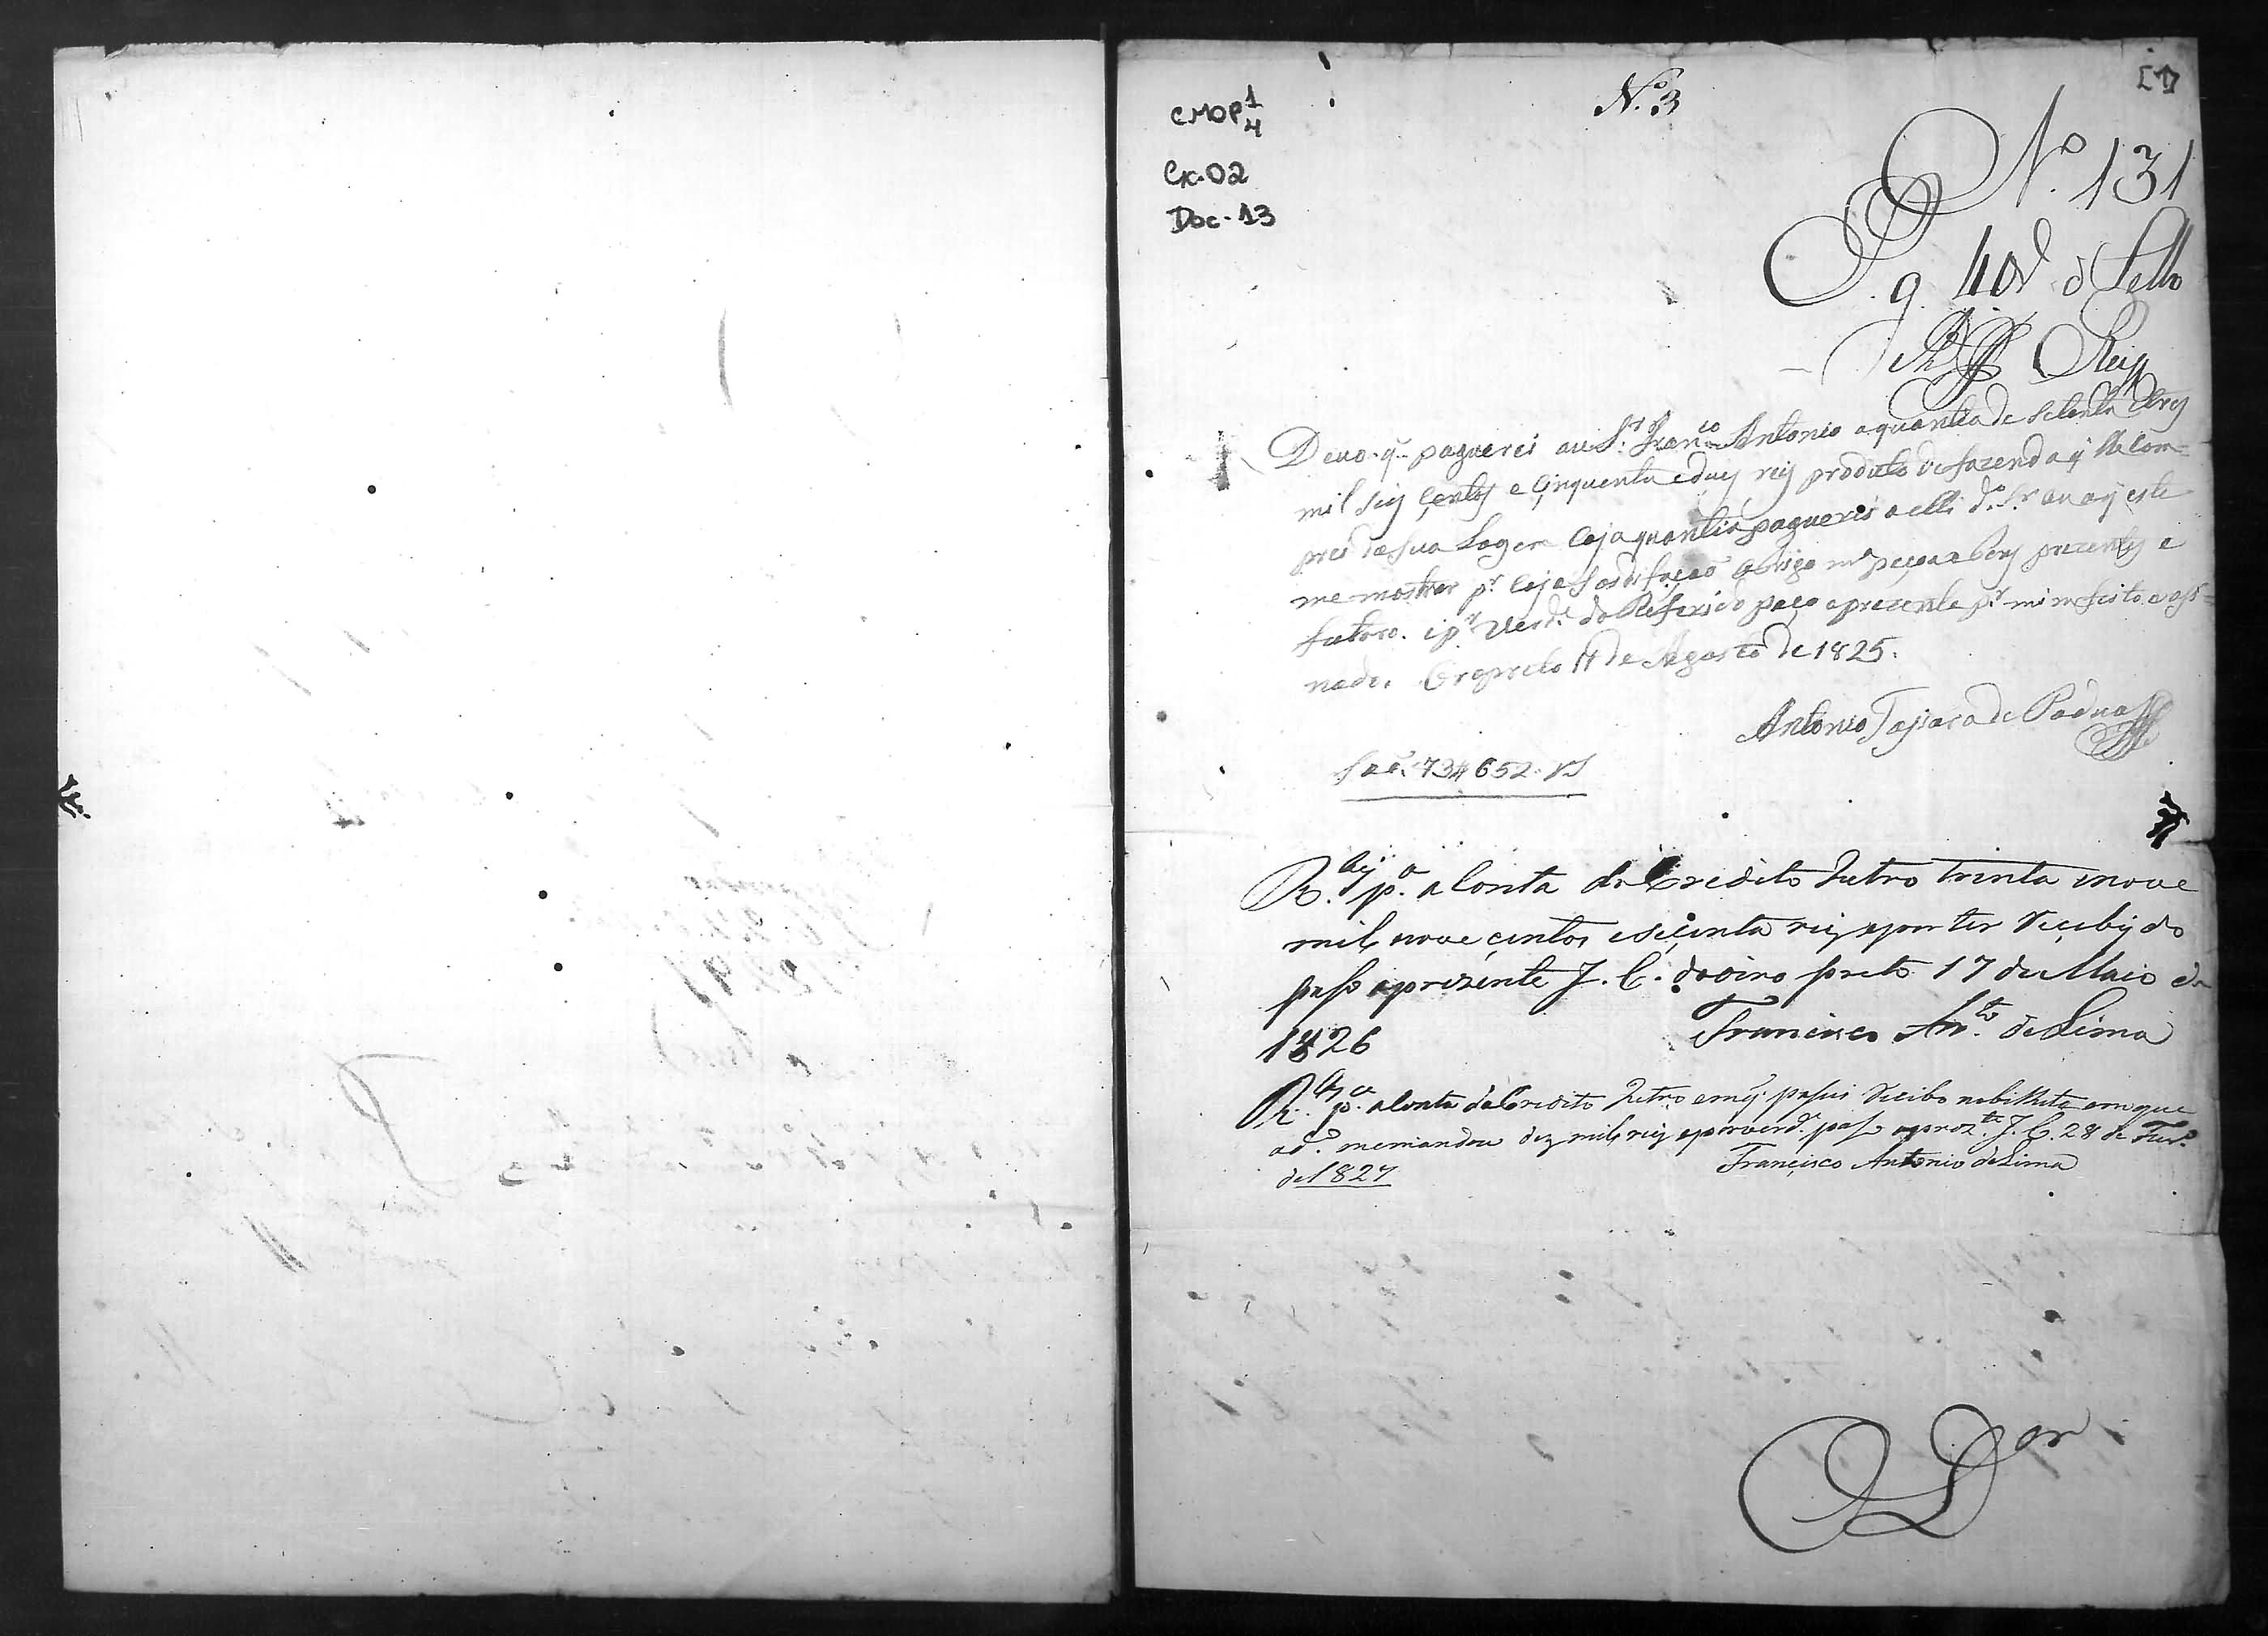 [1]
CMOP 1/4
Cx. 02
Doc. 13
N.º 3
N.º 131
P. g. 40 r d Sello
Reis
Devo q.̃ paguerei au S.r Fran.co Antonio a quantia de setenta e tres
mil seis çentos e çinquenta e dues reis produto de fazenda q̃ lhe com=
prei da sua Logea Coja quantia paguerei a elle d.º S.r au a q̃ este
me mostrar p.r coja Sastisfaçaõ obrigo m.ª peçoa e bens prezentes e
futoro. i p.r verd.e do Referido paço a prezente p.r mim feito e asi=
nado. Oropreto 11 de Agosto de 1825.
Antonio de Padua
Saõ. 73#652 rs
R.bij p.ª a Conta do Credito Retro trinta e nove
mil nove centos e secenta reis e por ter Recebido
paso a prezente I. C. do oiro preto 17 de Maio de
1826
Francisco An.to de Lima
R.bij p.ª a Conta do Credito Retro em q̃ pasei Recibo no bilhete em que
a d.º me mandou dez mil reis e por verd.e paso a prez.te I. C. 28 de Fever.º
de 1827
Francisco Antonio de Lima
D.or